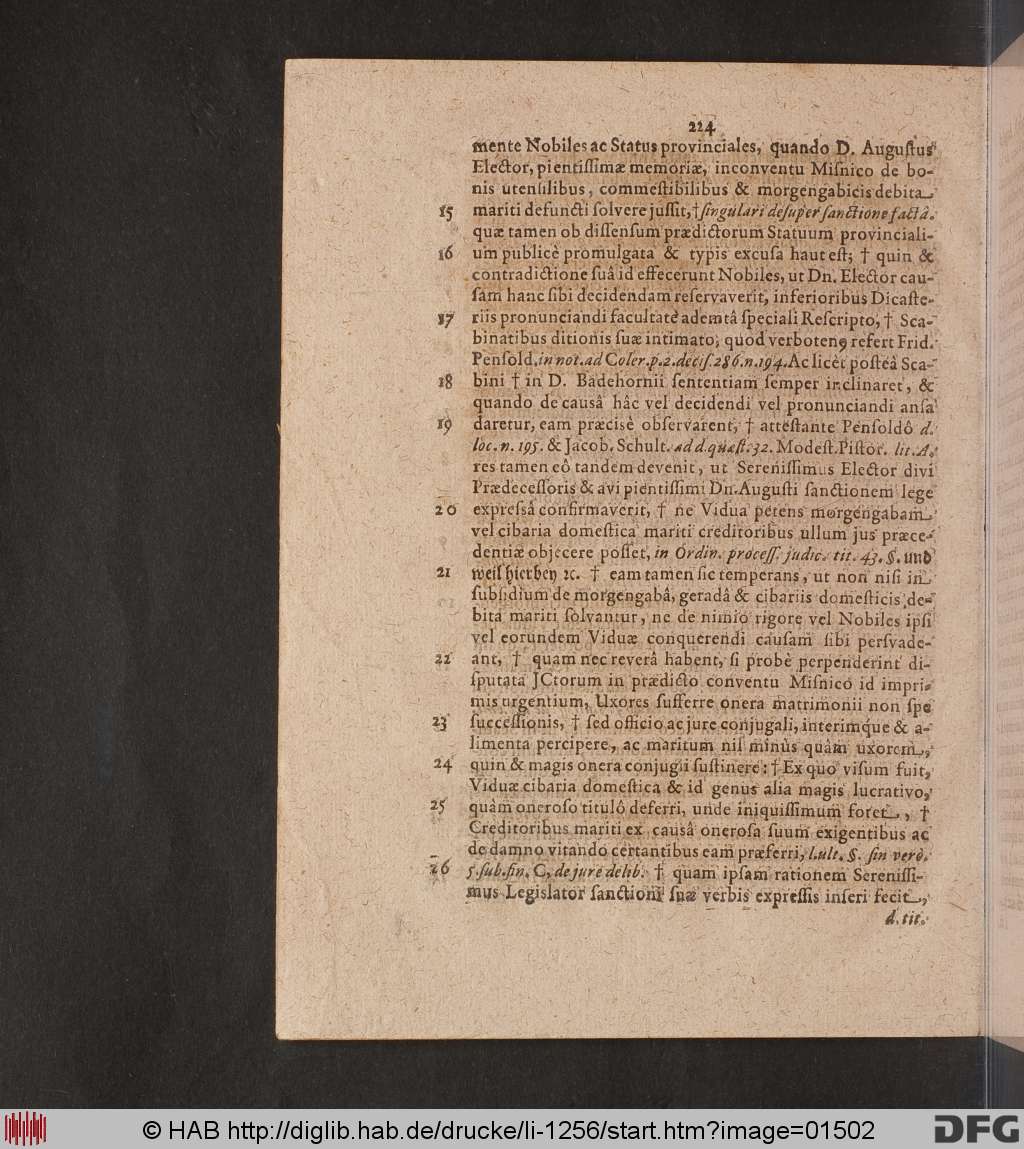 224
mente Nobiles ac Status provinciales, quando D. Augustus
Elector, pientissimæ memoriæ, inconventu Misnico de bo-
nis utensilibus, commestibilibus & morgengabicis debita
15 mariti defuncti solvere jussit, † singulari desuper sanctione factâ.
quæ tamen ob dissensum prædictorum Statuum provinciali-
16 um publicè promulgata & typis excusa haut est; † quin &
contradictione suâ id effecerunt Nobiles, ut Dn. Elector cau-
sam hanc sibi decidendam reservaverit, inferioribus Dicaste-
17 riis pronunciandi facultate ademtâ speciali Rescripto, † Sca-
binatibus ditionis suæ intimato; quod verbotenꝰ refert Frid.
Pensold. in not. ad Coler. p. 2. decis. 286. n. 194. Ac licèt posteâ Sca-
18 bini † in D. Badehornii sententiam semper inclinaret, &
quando de causâ hâc vel decidendi vel pronunciandi ansa
19 daretur, eam præcisè observarent, † attestante Pensoldô d.
loc. n. 195. & Jacob. Schult. ad d. quæst. 32. Modest. Pistor. lit. A.
res tamen eô tandem devenit, ut Serenissimus Elector divi
Prædecessoris & avi pientissimi Dn. Augusti sanctionem lege
20 expressâ confirmaverit, † ne Vidua petens morgengabam
vel cibaria domestica mariti creditoribus ullum jus præce-
dentiæ objecere posset, in Ordin. process. judic. tit. 43. §. und
21 weil hierbey ꝛc. † eam tamen sic temperans, ut non nisi in
subsidium de morgengabâ, geradâ & cibariis domesticis de-
bita mariti solvantur, ne de nimio rigore vel Nobiles ipsi
vel eorundem Viduæ conquerendi causam sibi persvade-
22 ant, † quam nec reverâ habent, si probè perpenderint di-
sputata JCtorum in prædicto conventu Misnico id impri-
mis urgentium, Uxores sufferre onera matrimonii non spe
23 successionis, † sed officio ac jure conjugali, interimque & a-
limenta percipere, ac maritum nil minùs quàm uxorem,
24 quin & magis onera conjugii sustinere: † Ex quo visum fuit,
Viduæ cibaria domestica & id genus alia magis lucrativo,
25 quàm oneroso titulô deferri, unde iniquissimum foret, †
Creditoribus mariti ex causâ onerosa suum exigentibus ac
de damno vitando certantibus eam præferri, l. ult. §. sin verò.
26 5. sub. fin. C. de jure delib. † quam ipsam rationem Serenissi-
mus Legislator sanctioni suæ verbis expressis inseri fecit,
d. tit.
© HAB http://diglib.hab.de/drucke/li-1256/start.htm?image=01502
DFG